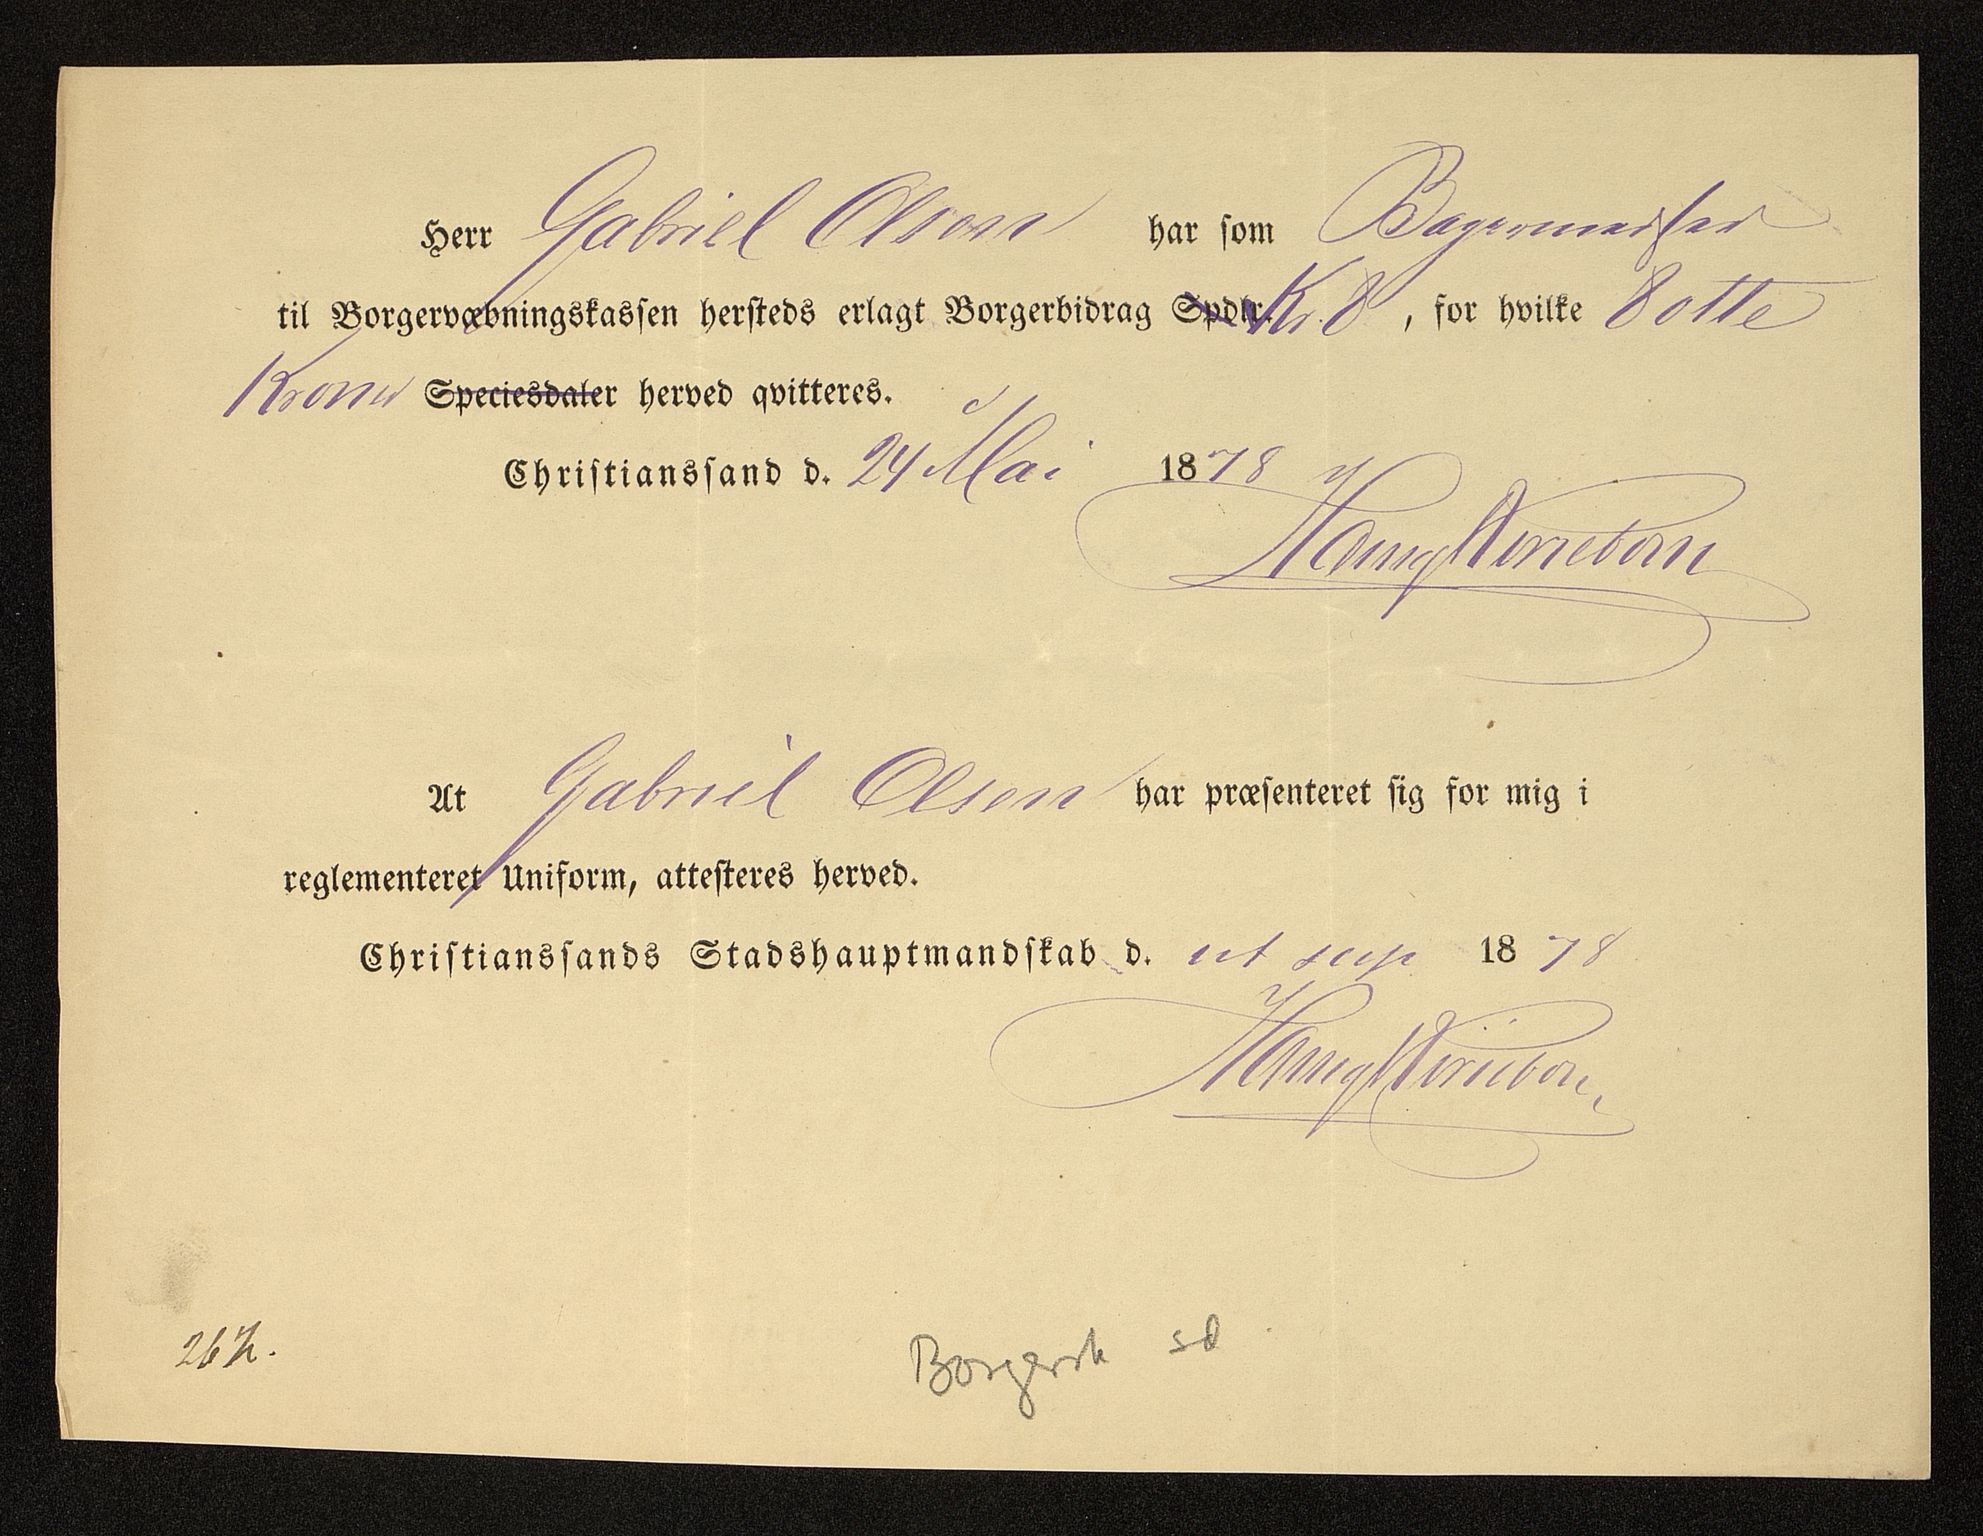 Herr Gabriel Olsen har som Bagermester
til Borgervæbningskassen hersteds erlagt Borgerbidrag Spdlr. Kr 8, for hvilke 8 otte
Kroner Speciesdaler herved qvitteres.
Christianssand d. 24 Mai 1878
At Gabriel Olsen har præsenteret sig for mig i
reglementeret Uniform, attesteres herved.
Christianssands Stadshauptmandskab d. ut sup 1878
Borgersk sd